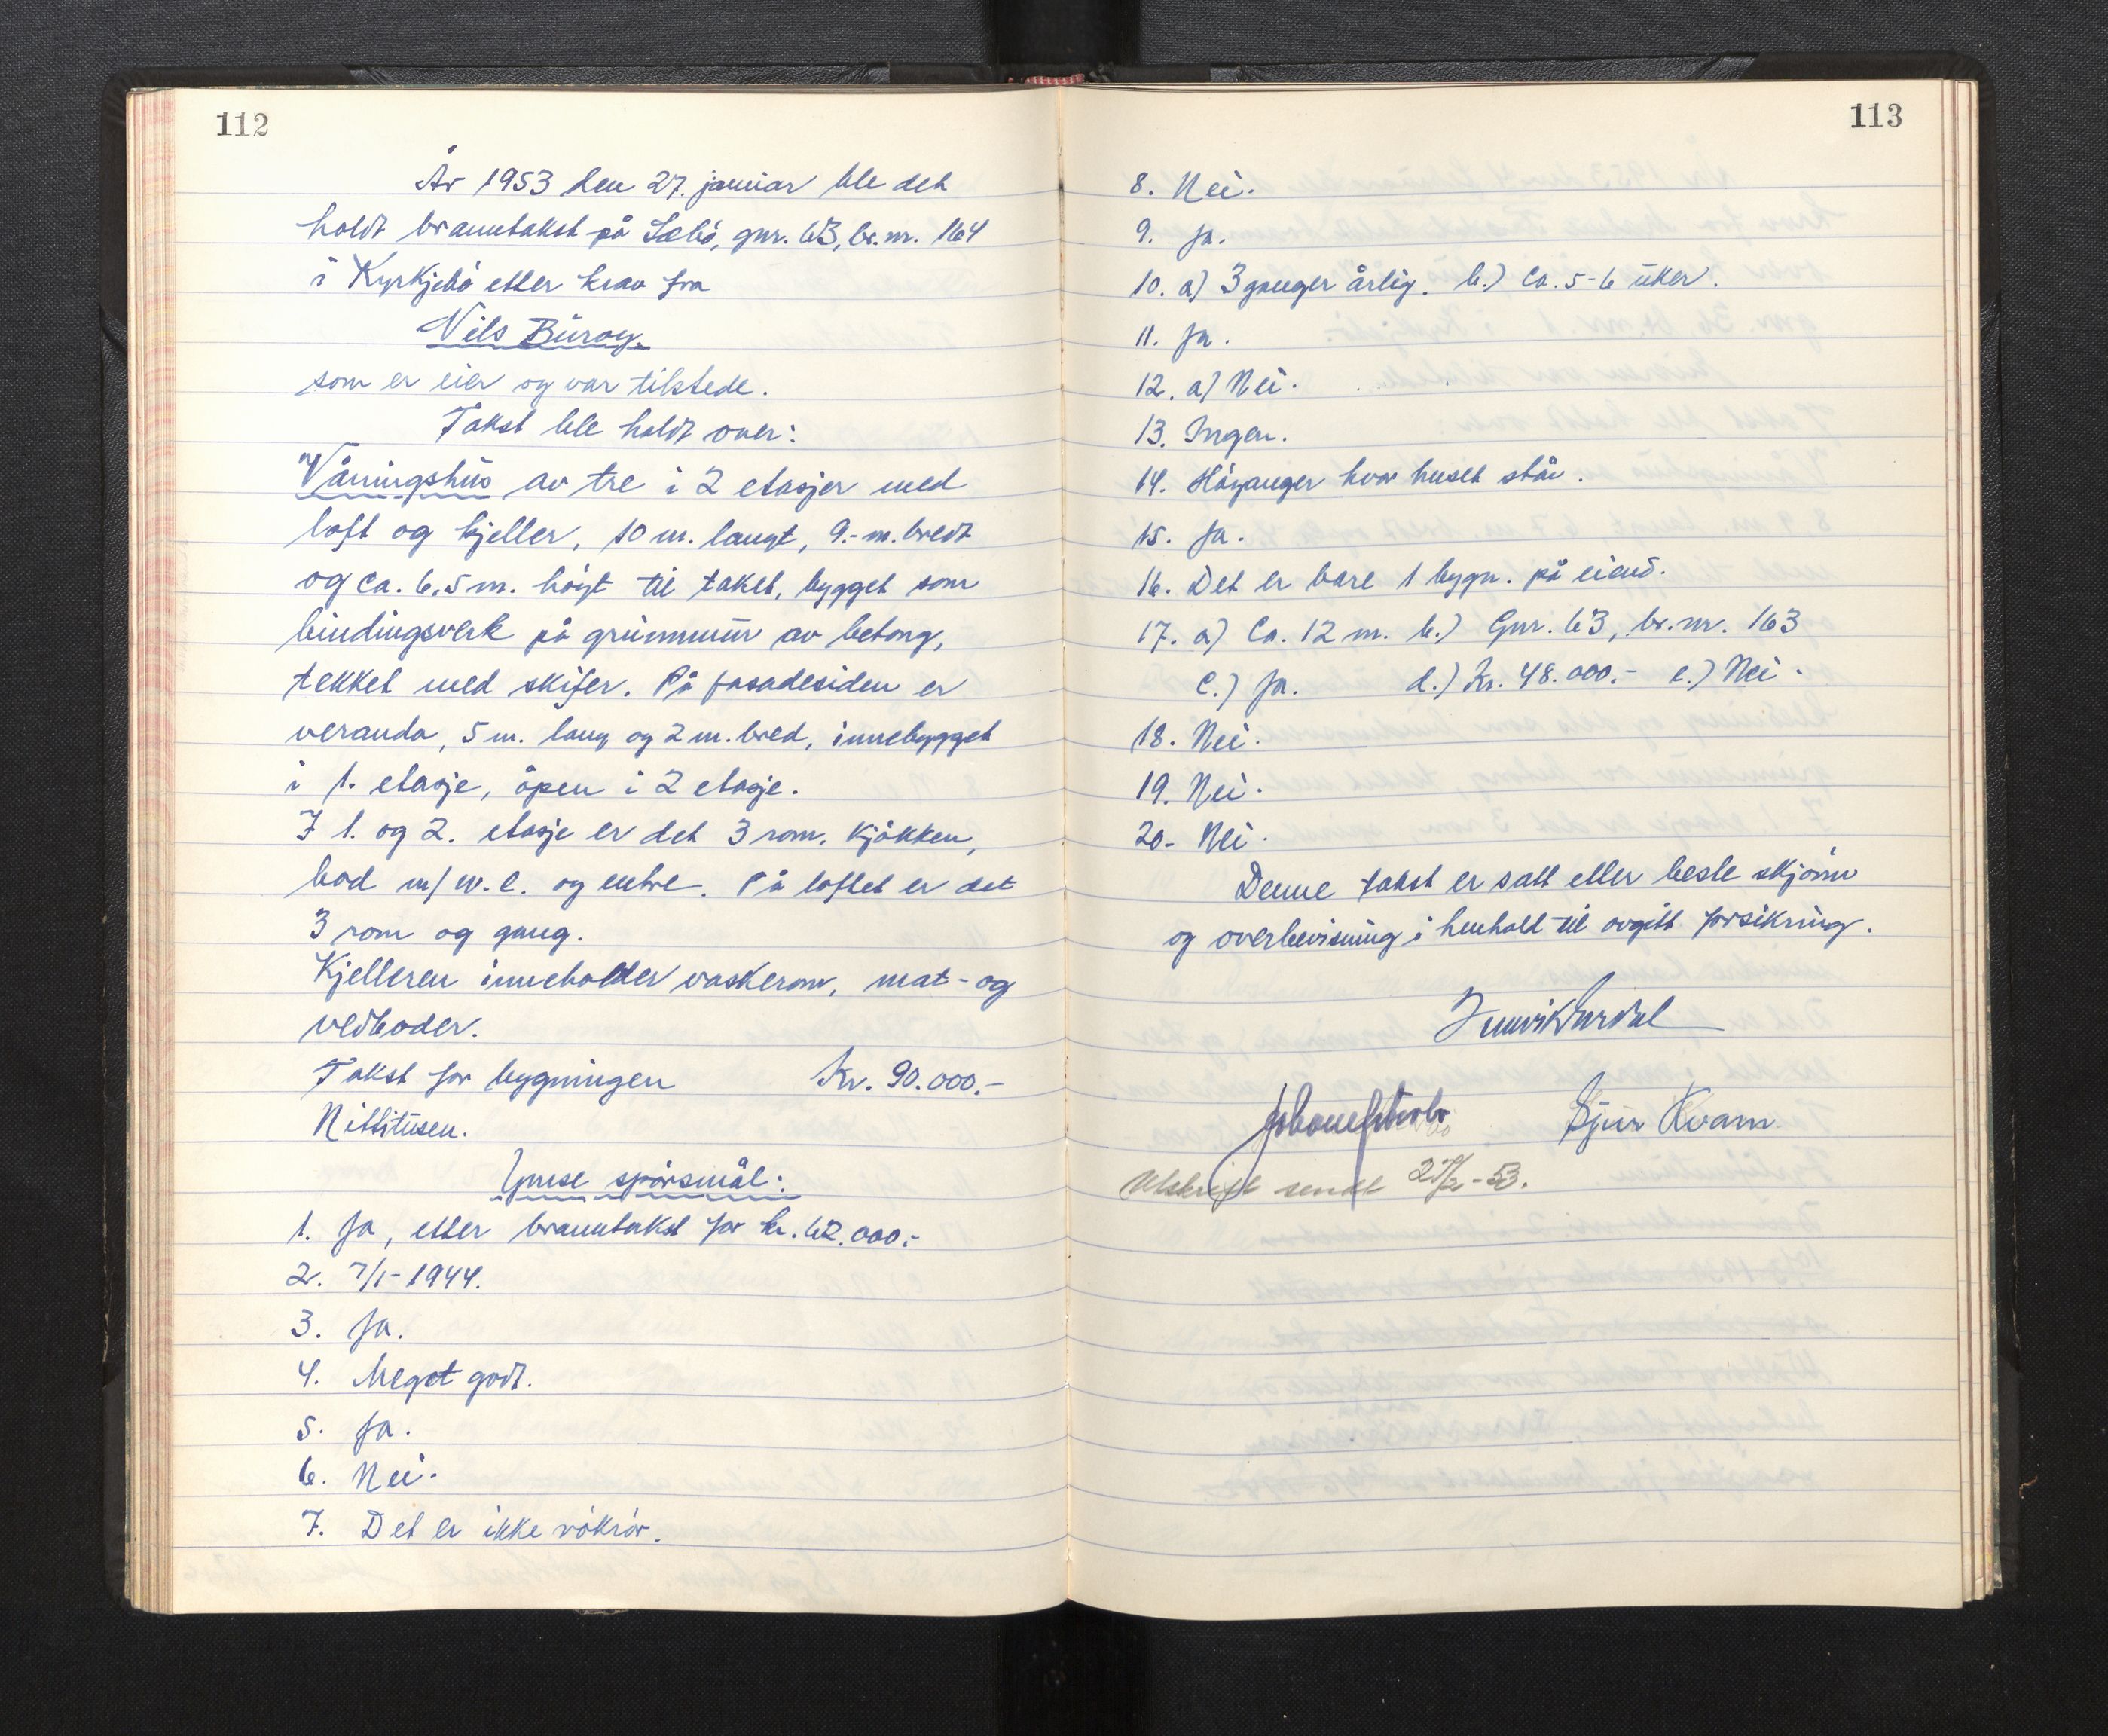 112
År 1953 den 27. januar ble det
holdt branntakst på Sæbø, gnr. 63, br.nr. 164
i Kyrkjebø etter krav fra
Nils Burøy.
som er eier og var tilstede.
Takst ble holdt over:
Våningshus av tre i 2 etasjer med
loft og kjeller, 10 m. langt, 9.- m. bredt
og ca. 6,5 m. høgt til taket, bygget som
bindingsverk på grunnmur av betong,
tekket med skifer. På fasadesiden er
veranda, 5 m. lang og 2 m. bred, innebygget
i 1. etasje, åpen i 2 etasje.
I 1. og 2. etasje er det 3 rom, kjøkken,
bad m/ w.c. og entre. På loftet er det
3 rom og gang.
Kjelleren inneholder vaskerom, mat- og
vedboder.
Takst for bygningen Kr. 90.000.-
Nittitusen.
Ymse spørsmål:
1. Ja, etter branntakst for kr. 62.000.-
2. 7/1-1944.
3. Ja.
4. Meget godt.
5. Ja.
6. Nei.
7. Det er ikke røkrør.
113
8. Nei.
9. Ja.
10. a) 3 ganger årlig. b.) Ca. 5-6 uker.
11. Ja.
12. a) Nei.
13. Ingen.
14. Høyanger hvor huset står.
15. Ja.
16. Det er bare 1 bygn. på eiend.
17. a) Ca. 12 m. b.) Gnr. 63, br.nr. 163
c.) Ja. d.) Kr. 48.000.- e.) Nei.
18. Nei.
19. Nei.
20. Nei.
Denne takst er satt etter beste skjønn
og overbevisning i henhold til avgitt forsikring.
Sjur Kvam
Utskrift sendt -53.